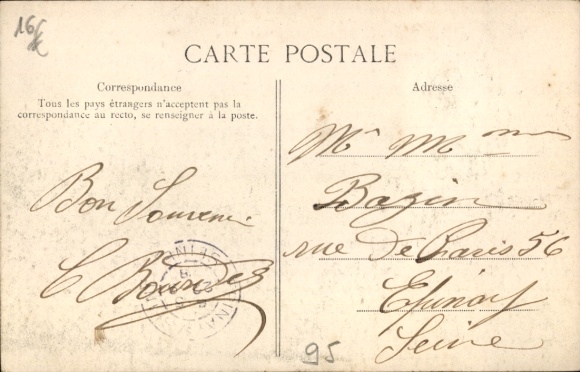 16€
CARTE POSTALE
Correspondance
Tous les pays étrangers n'acceptent pas la
correspondance au recto, se renseigner à la poste.
Bon Souvenir
Adresse
Mr Mme
Bazin
rue De Paris 56
Epinay
Seine
95